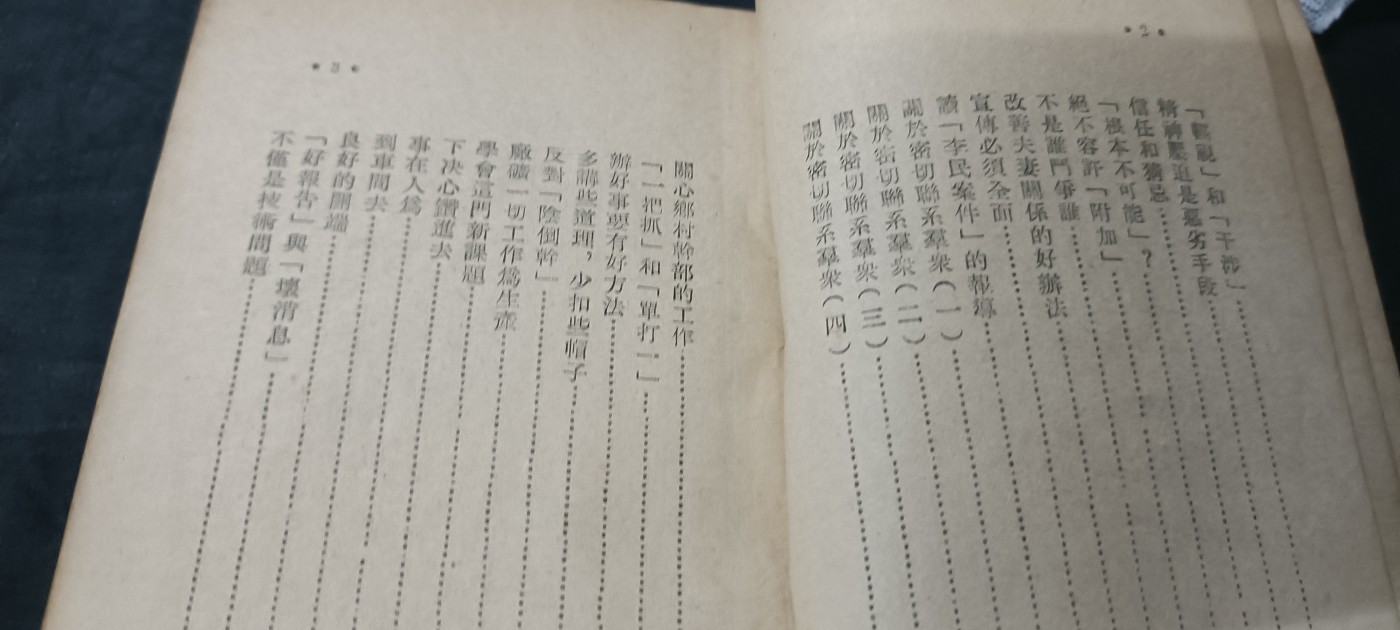 •2•
「輕視」和「干涉」
精神壓迫是惡劣手段
信任和猜忌
「根本不可能」?
絕不容許「附加」
不是誰鬥爭誰
改善夫妻關係的好辦法
宣傳必須全面
讀「李民案件」的報導
關於密切聯系羣衆(一)
關於密切聯系羣衆(二)
關於密切聯系羣衆(三)
關於密切聯系羣衆(四)
•3•
關心鄉村幹部的工作
「一把抓」和「單打一」
辦好事要有好方法
多講些道理,少扣些帽子
反對「陰倒幹」
廠礦一切工作爲生產
學會這門新課題
下决心鑽進去
事在人爲
到車間去
良好的開端
「好報告」與「壞消息」
不僅是技術問題